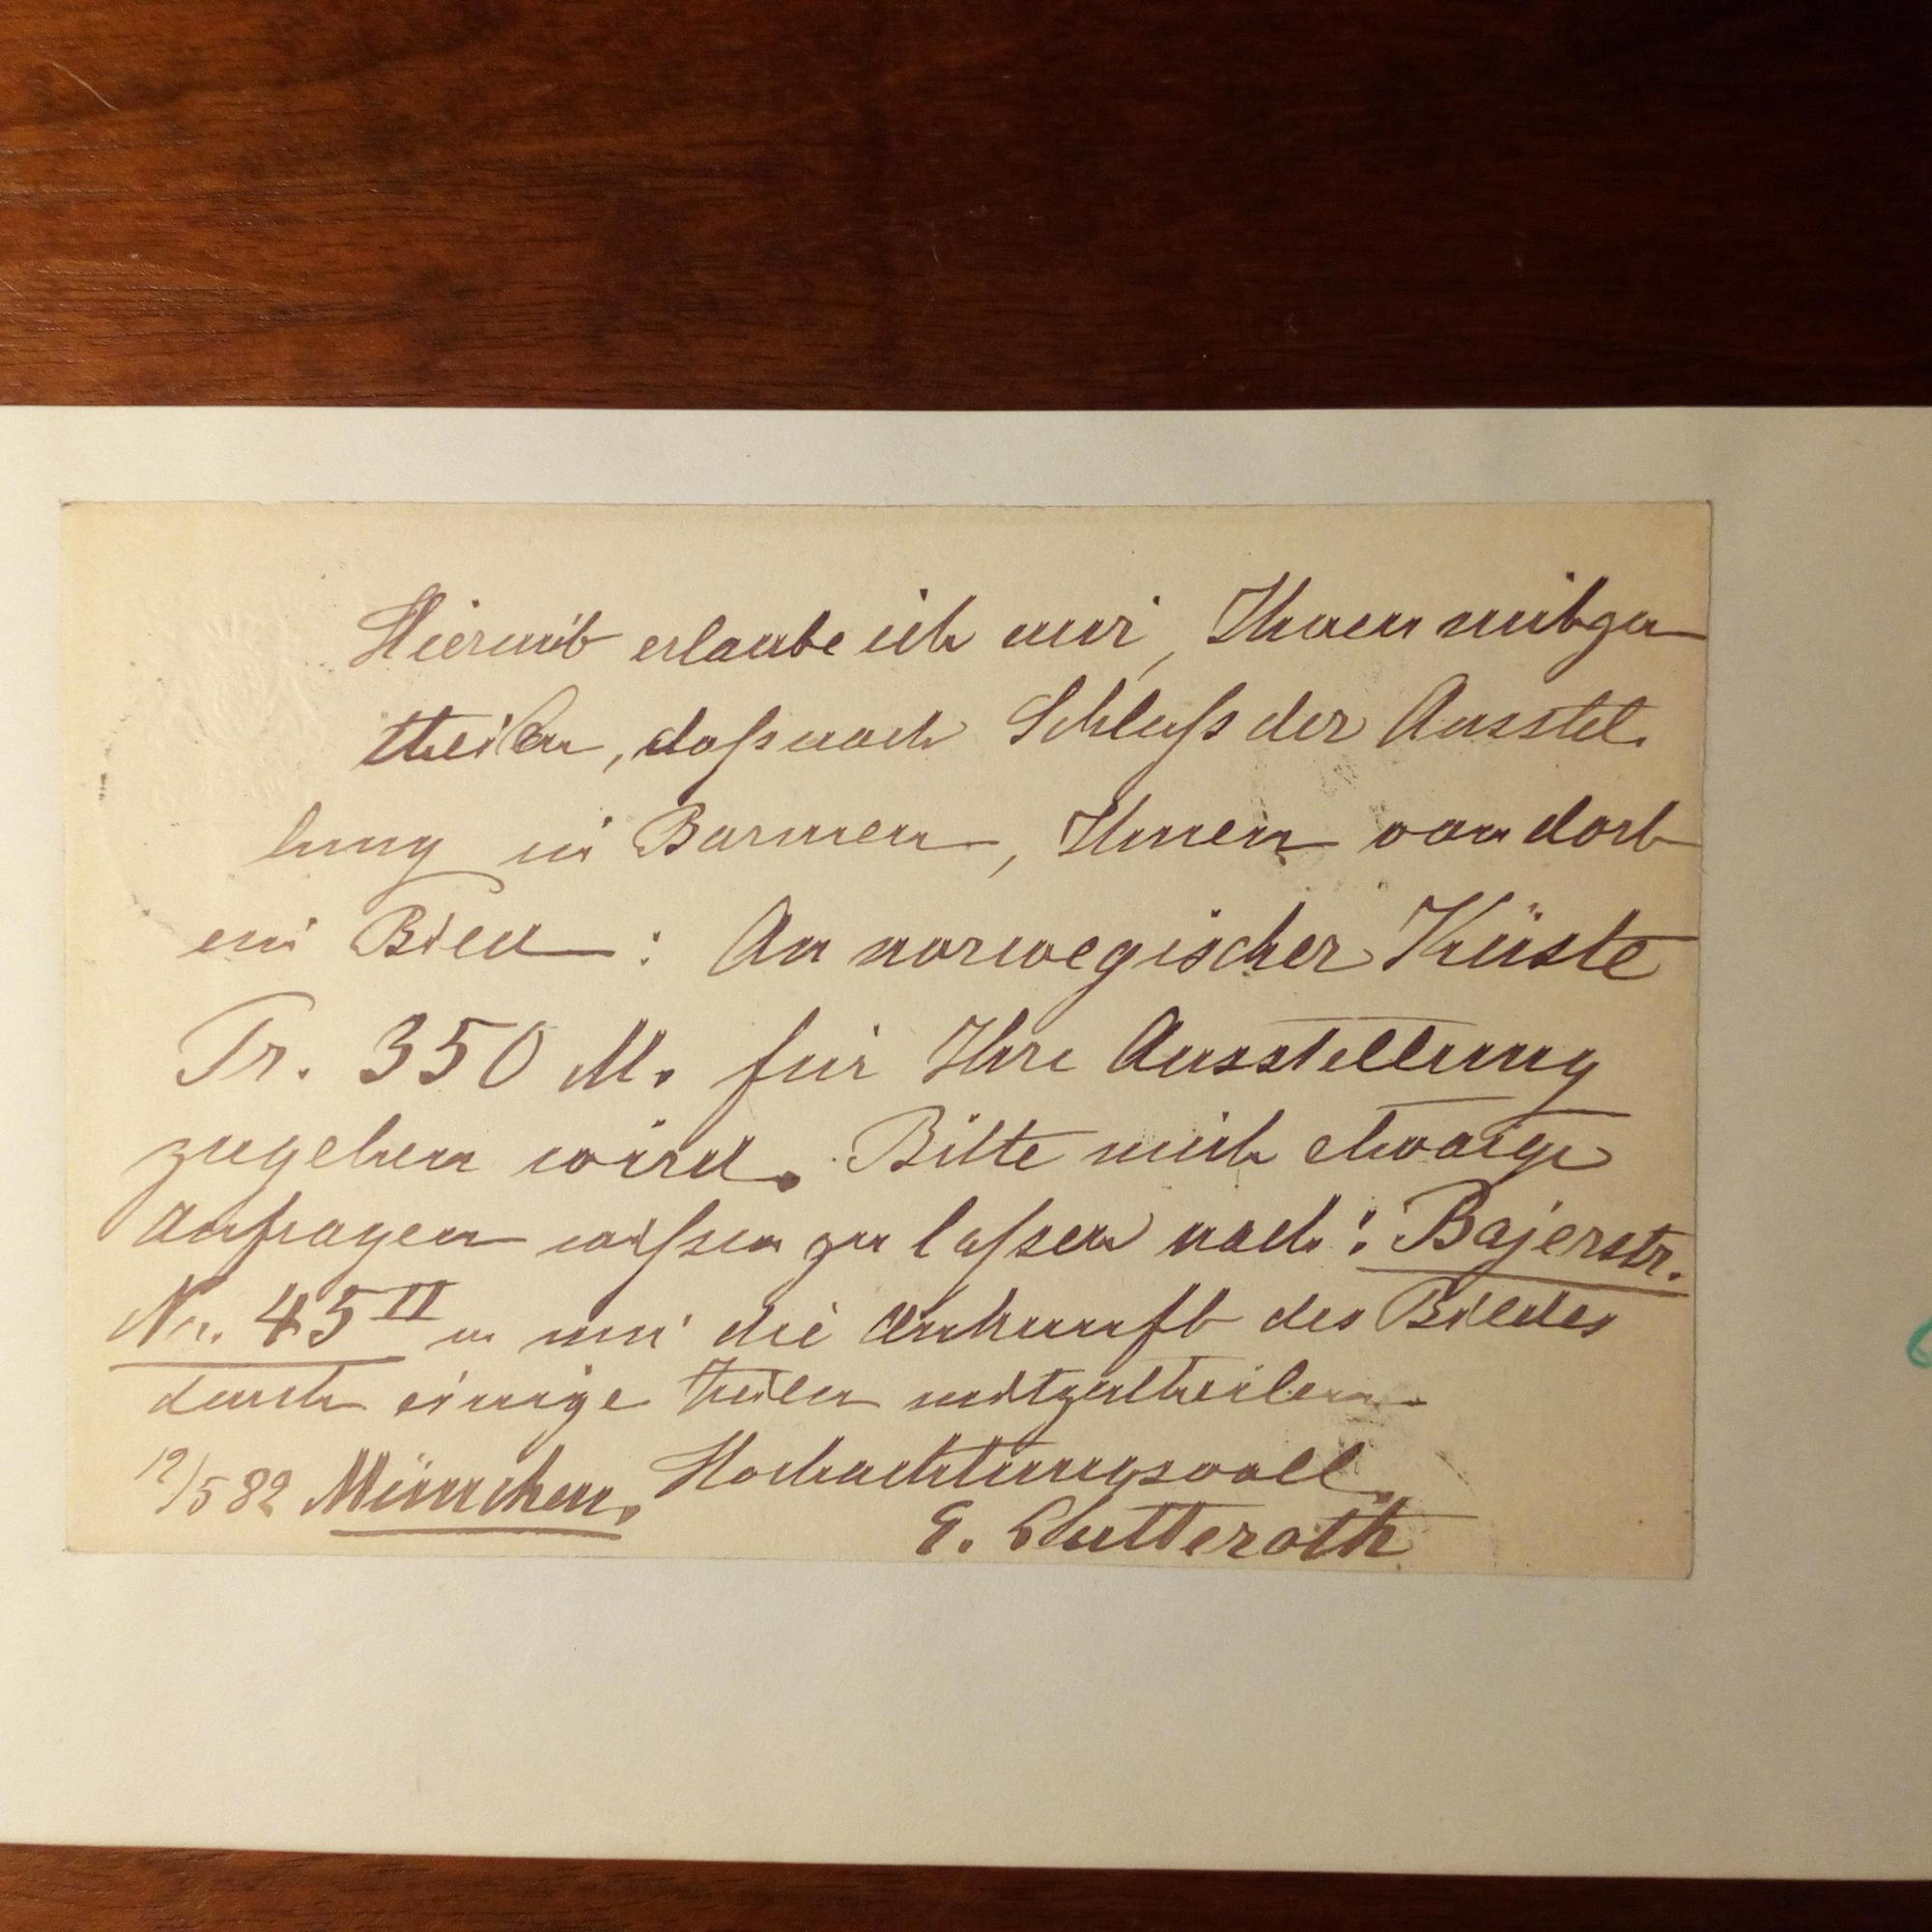 Hiermit erlaube ich mir, Ihnen mitzu
theilen, daß nach Schluß der Ausstel.
lung in Barmen, Ihnen von dort
ein Bild: An norwegischer Küste
Pr. 350 M. für Ihre Ausstellung
zugehen wird. Bitte mich etwaige
Anfragen wißen zu laßen nach: Bajerstr.
No. 45 II u mir die Ankunft des Bildes
durch einige Zeilen mitzutheilen
Hochachtungsvoll
12/5 82 München. E. Lutteroth